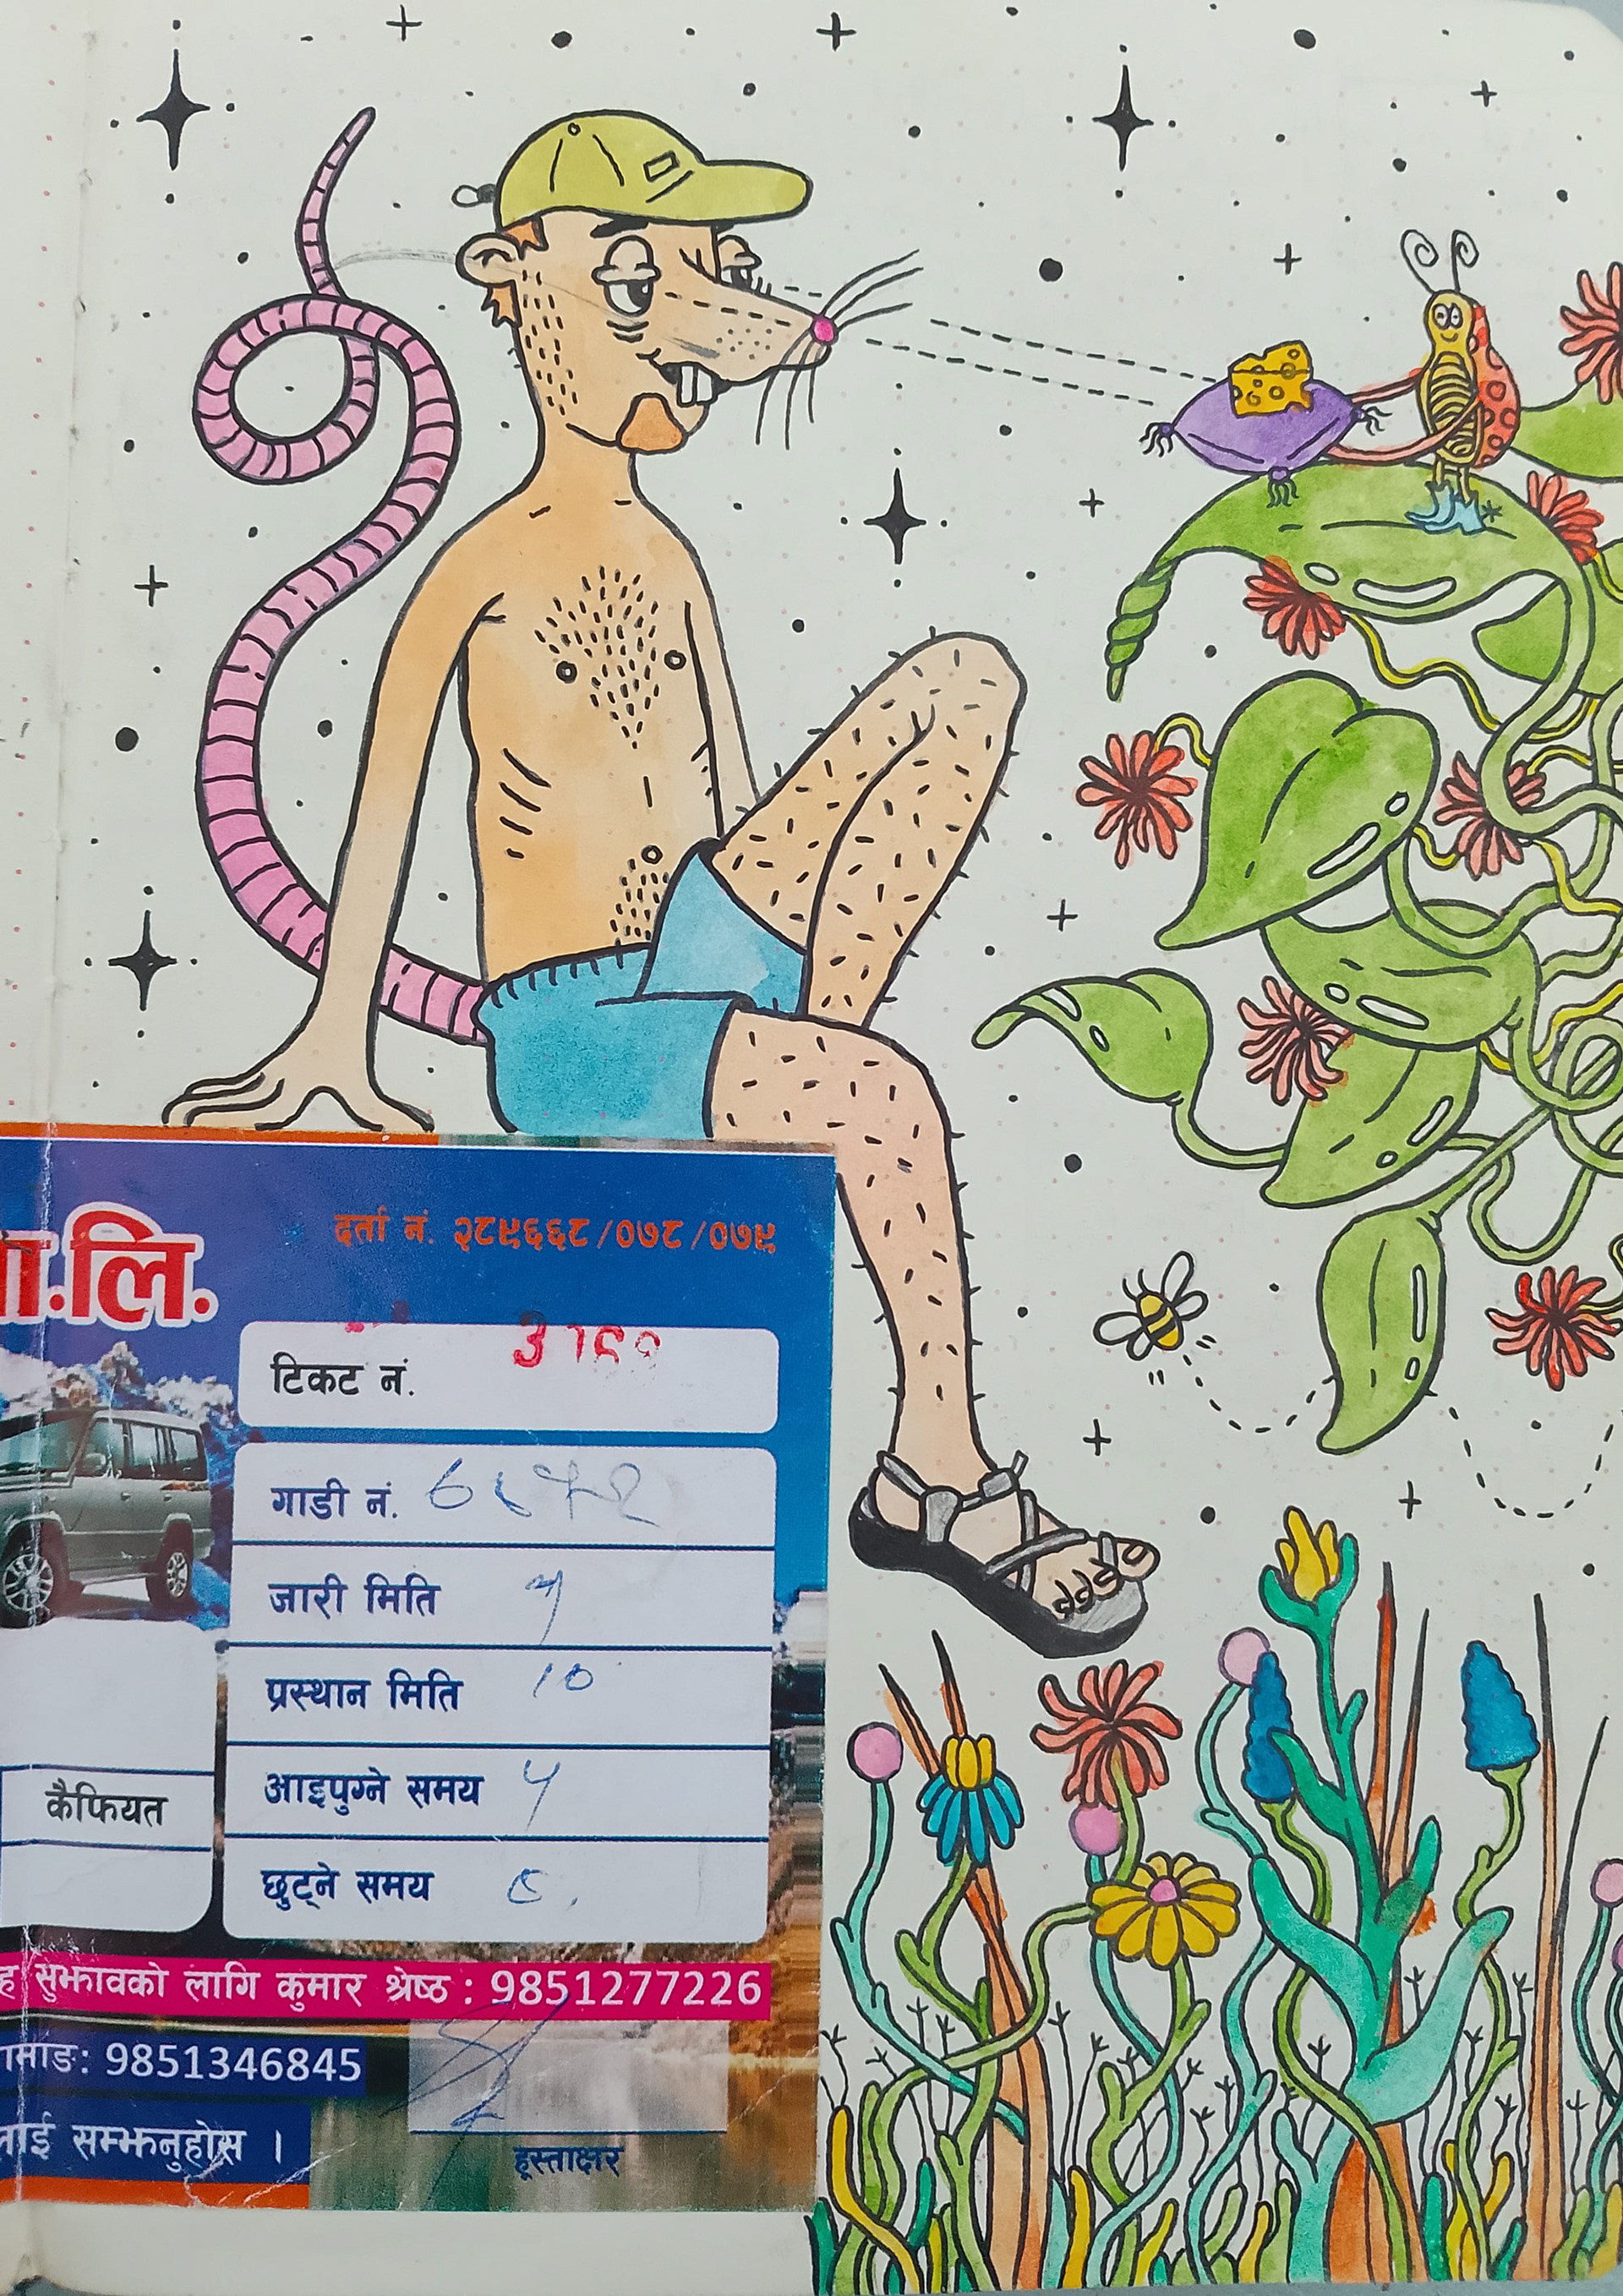 दर्ता नं. २८९६६८/०७८/०७९
ा.लि.
टिकट नं.
गाडी नं.
जारी मिति
प्रस्थान मिति 10
आइपुग्ने समय
छुट्ने समय
कैफियत
सुझावको लागि कुमार श्रेष्ठ : 9851277226
9851346845
सम्झनुहोस ।
हस्ताक्षर